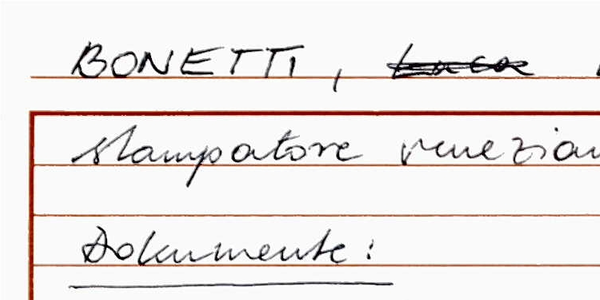 BONETTI, Luca
stampatore venezian
Dokumente: